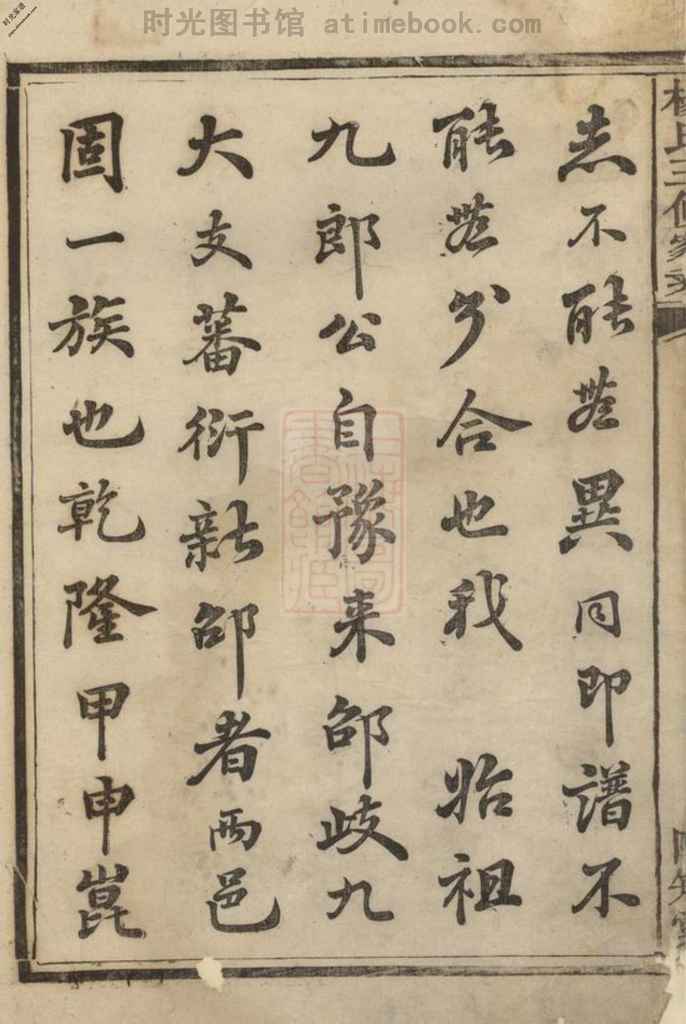 时光图书馆 atimebook.com
志不能無異同即譜不
能無分合也我 始祖
九郎公自豫来邵歧九
大支蕃衍新邵者兩邑
固一族也乾隆甲申崑